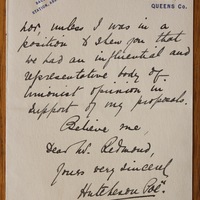 QUEENS Co.
nor, unless I was in a
position to shew you that
we had an influential and
representative body of
Unionist opinion in
support of my proposals.
Believe me,
Dear Mr. Redmond,
Yours very sincerely
Hutcheson Poë.